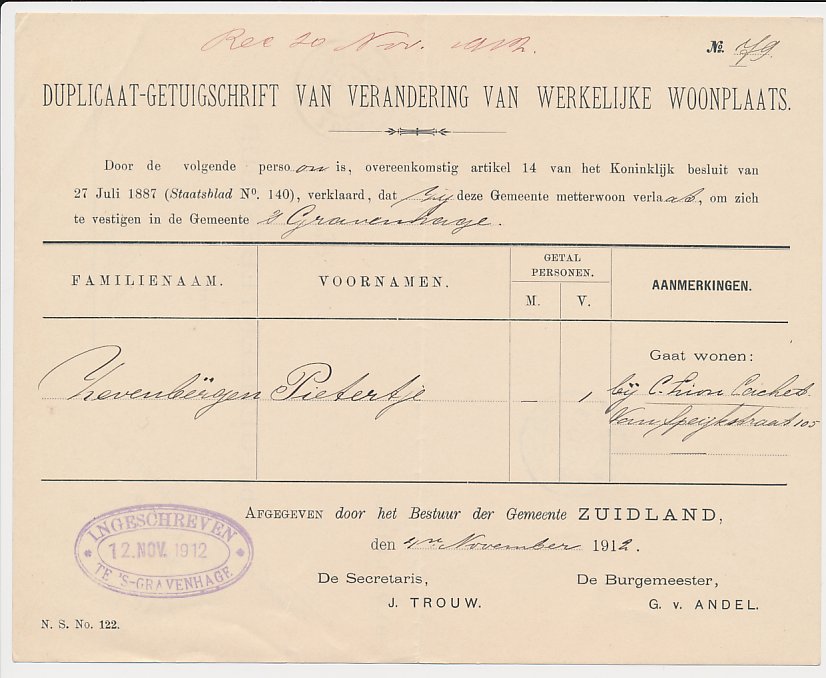 Rec 20 Nov. 1912.
No. 79.
DUPLICAAT-GETUIGSCHRIFT VAN VERANDERING VAN WERKELIJKE WOONPLAATS.
Door de volgende persoon is, overeenkomstig artikel 14 van het Koninklijk besluit van
27 Juli 1887 (Staatsblad No. 140), verklaard, dat zij deze Gemeente metterwoon verlaat, om zich
te vestigen in de Gemeente 's Gravenhage.
FAMILIENAAM. VOORNAMEN. GETAL PERSONEN. AANMERKINGEN.
M. V.
Gaat wonen:
Zevenbergen Pietertje — 1 bij C. Lion Cachet
Van Speijkstraat 105
AFGEGEVEN door het Bestuur der Gemeente ZUIDLAND,
den November 1912.
De Secretaris, De Burgemeester,
J. TROUW. G. v. ANDEL.
INGESCHREVEN
12.NOV.1912
TE 'S-GRAVENHAGE
N. S. No. 122.